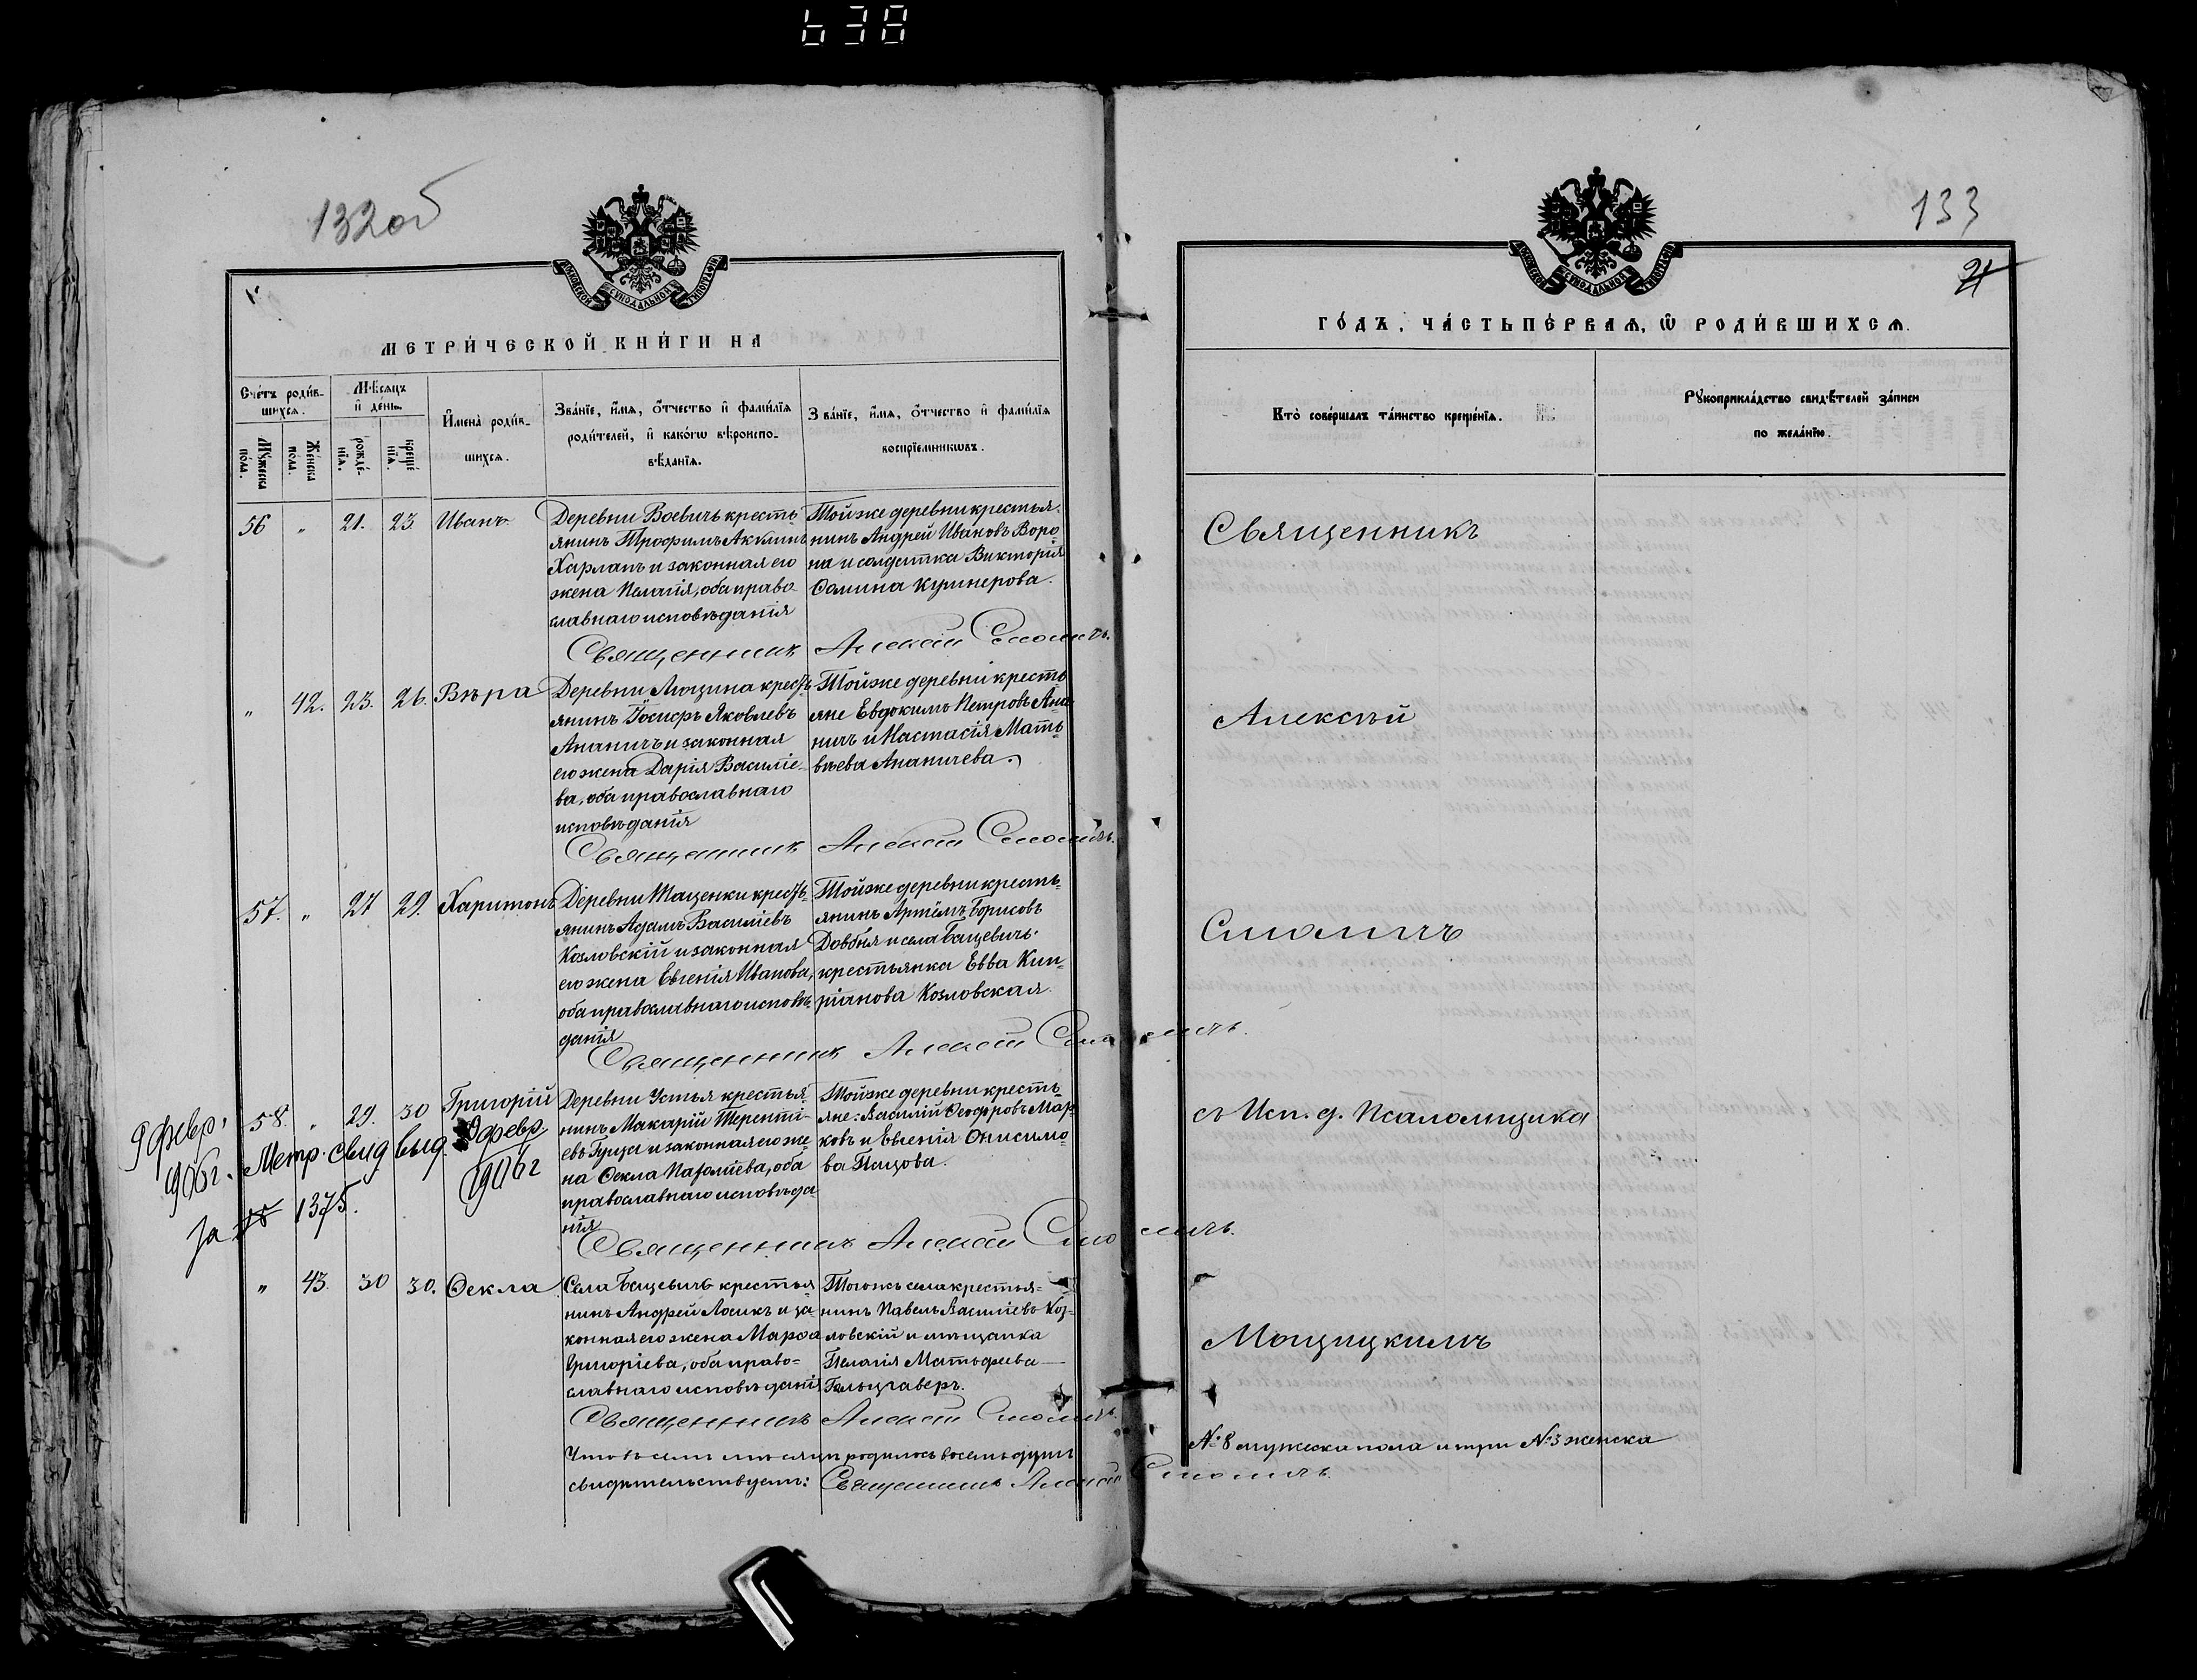 638
132об
МЕТРИ́ЧЕСКОЙ КНИ́ГИ НА
Сче́тъ роди́в-
шихсѧ.
Мѣ́сяцъ
и҆ де́нь.
Мꙋ́жеска
по́ла.
Же́нска
по́ла.
рожде́-
нїѧ.
креще́
нїѧ.
И҆мена̀ роди́в-
шихсѧ.
Зва́нїе, и҆́мѧ, ѻ҆́тчество и҆ фами́лїѧ
роди́телей, и҆ како́гѡ вѣроиспо-
вѣ́данїѧ.
Зва́нїе, и҆́мѧ, ѻ҆́тчество и҆ фами́лїѧ
воспрїе́мникѡвъ.
56 " 21. 23 Иванъ
Деревни Воевичъ кресть-
янинъ Трофимъ Акулинъ
Харлапъ и законная его
жена Пелагія, оба право-
славнаго исповѣданія
Тойже деревни крестья-
нинъ Андрей Ивановъ Воро
на и солдатка Викторія
Фомина Кушнерова.
Священникъ Алексѣй Смоличъ.
" 42. 23. 26. Вѣра
Деревни Люцина кресть-
янинъ Іосифъ Яковлевъ
Ананичъ и законная
его жена Дарія Василіе-
ва, оба православнаго
исповѣданія
Тойже деревни кресть
яне Евдокимъ Петровъ Ана
ничъ и Настасія Мать-
вѣева Ананичева.
Священникъ Алексѣй Смоличъ.
57. " 27 29. Харитонъ
Деревни Тащенки кресть-
янинъ Адамъ Василіевъ
Козловскій и законная
его жена Евгенія Иванова,
оба православнаго исповѣ-
данія
Тойже деревни кресть-
янинъ Артёмъ Борисовъ
Довбня и села Бацевичъ
крестьянка Евва Кип-
ріанова Козловская.
Священникъ Алексѣй Смоличъ.
58. " 29. 30 Григорій
Деревни Устья крестья-
нинъ Макарій Теренті-
евъ Гуца и законная его же
на Ѳекла Парѳліева, оба
православнаго исповѣда
нія
Тойже деревни кресть-
яне: Василій Ѳеодоровъ Мар
ковъ и Евгенія Онисимо-
ва Пацова.
9 февр.
906 г. Метр. свид выд. 9 февр
1906 г
За № 1375.
Священникъ Алексѣй Смоличъ.
" 43. 30 30. Ѳекла
Села Бацевичъ крестья
нинъ Андрей Лосикъ и за-
конная его жена Марѳа
Григоріева, оба право-
славнаго исповѣданія
Тогожъ села крестья-
нинъ Павелъ Василіевъ Коз-
ловскій и мѣщанка
Пелагія Матьфеева
Гольцгаверъ.
Священникъ Алексѣй Смоличъ.
Что въ семъ мѣсяцѣ родилось восемь душъ
свидѣтельствуетъ: Священникъ Алексѣй Смоличъ.
133
21
ГО́ДЪ, ЧА́СТЬ ПЕ́РВАѦ, Ѡ҆ РОДИ́ВШИХСѦ.
Кто̀ соверша́лъ та́инство креще́нїѧ.
Рꙋкоприкла́дство свидѣ́телей за́писи
по жела́нїю.
Священникъ
Алексѣй
Смоличъ
съ Исп. д. Псаломщика
Мощицкимъ
№ 8 мужеска пола и три № 3 женска